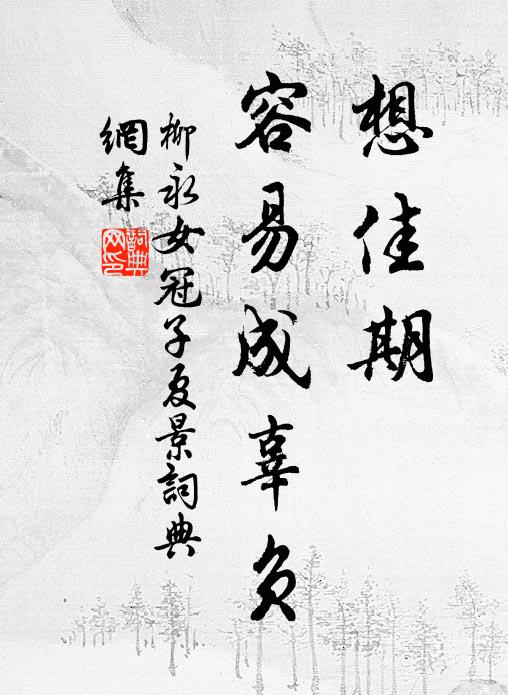 想佳期
容易成辜負
柳永女冠子夏景詞典
網集
詞典
网印